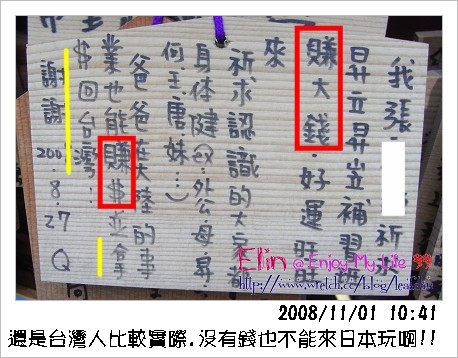 我張 祈
昇立昇立補習
賺大錢.好運旺旺
來
祈求認識的大家都
身体健 外公.母.昇.
何.王.唐.妹...
爸爸在大陸的事
業也能賺$並拿
$回台灣!
謝謝 200.8.27 Q
Elin @ Enjoy My Life
http://www.wretch.cc/blog/
2008/11/01 10:41
還是台灣人比較實際.沒有錢也不能來日本玩啊!!